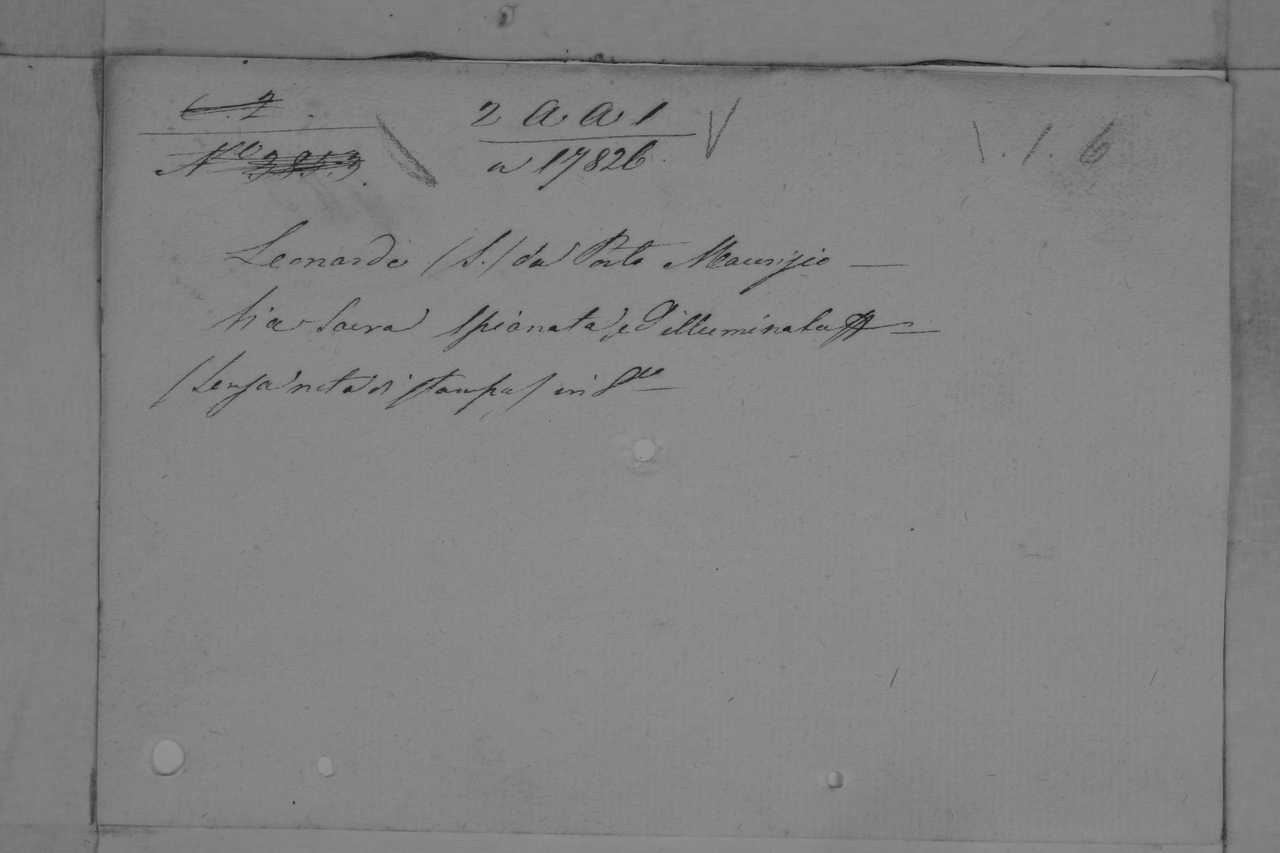 C. 2.
2 a a 1 V
1. 1. 6
N.ro 3853.
a 17826.
Leonardo (S.) da Porto Maurizio —
Via Sacra spianata, ed illuminata —
(Senza nota di stampa) in 8.vo